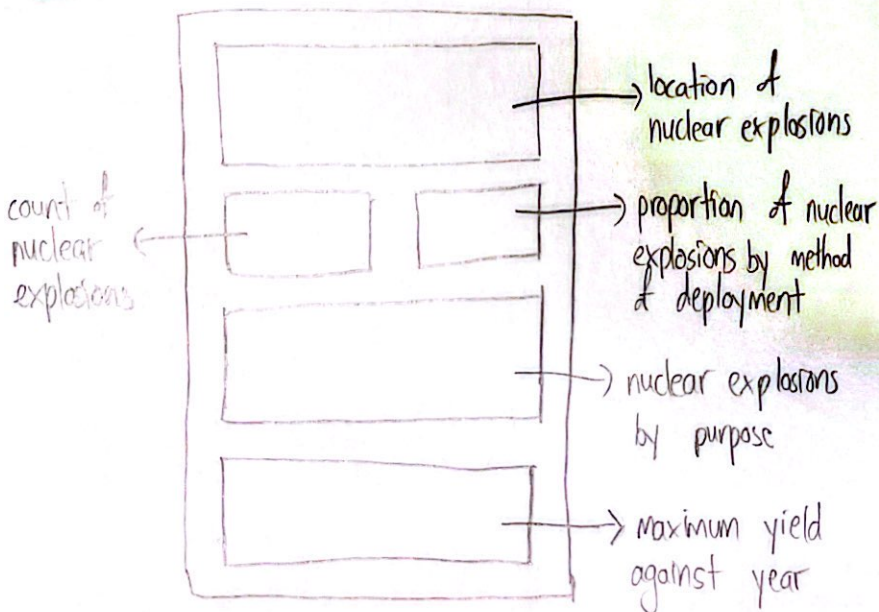 location of
nuclear explosions
count of
nuclear
explosions
proportion of nuclear
explosions by method
of deployment
nuclear explosions
by purpose
maximum yield
against year